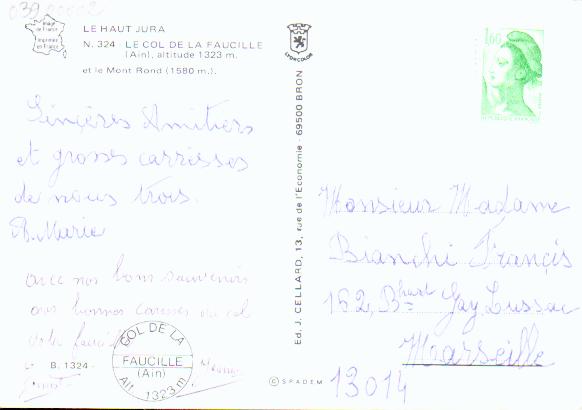 03900002
Image de France
imprimée en France
LE HAUT JURA
N. 324 LE COL DE LA FAUCILLE
(Ain), altitude 1323 m.
et le Mont Rond (1580 m.).
LYONCOLOR
1,60
Sincères Amitiers
et grosses carresses
de nous trois.
Marie
avec nos bons souvenirs
bonnes du col
B. 1324
COL DE LA
FAUCILLE
(Ain)
Alt. 1323 m
Ed. J. CELLARD, 13, rue de l'Economie - 69500 BRON
© SPADEM
Monsieur Madame
Bianchi Françis
162, Gay Lussac
Marseille
13014